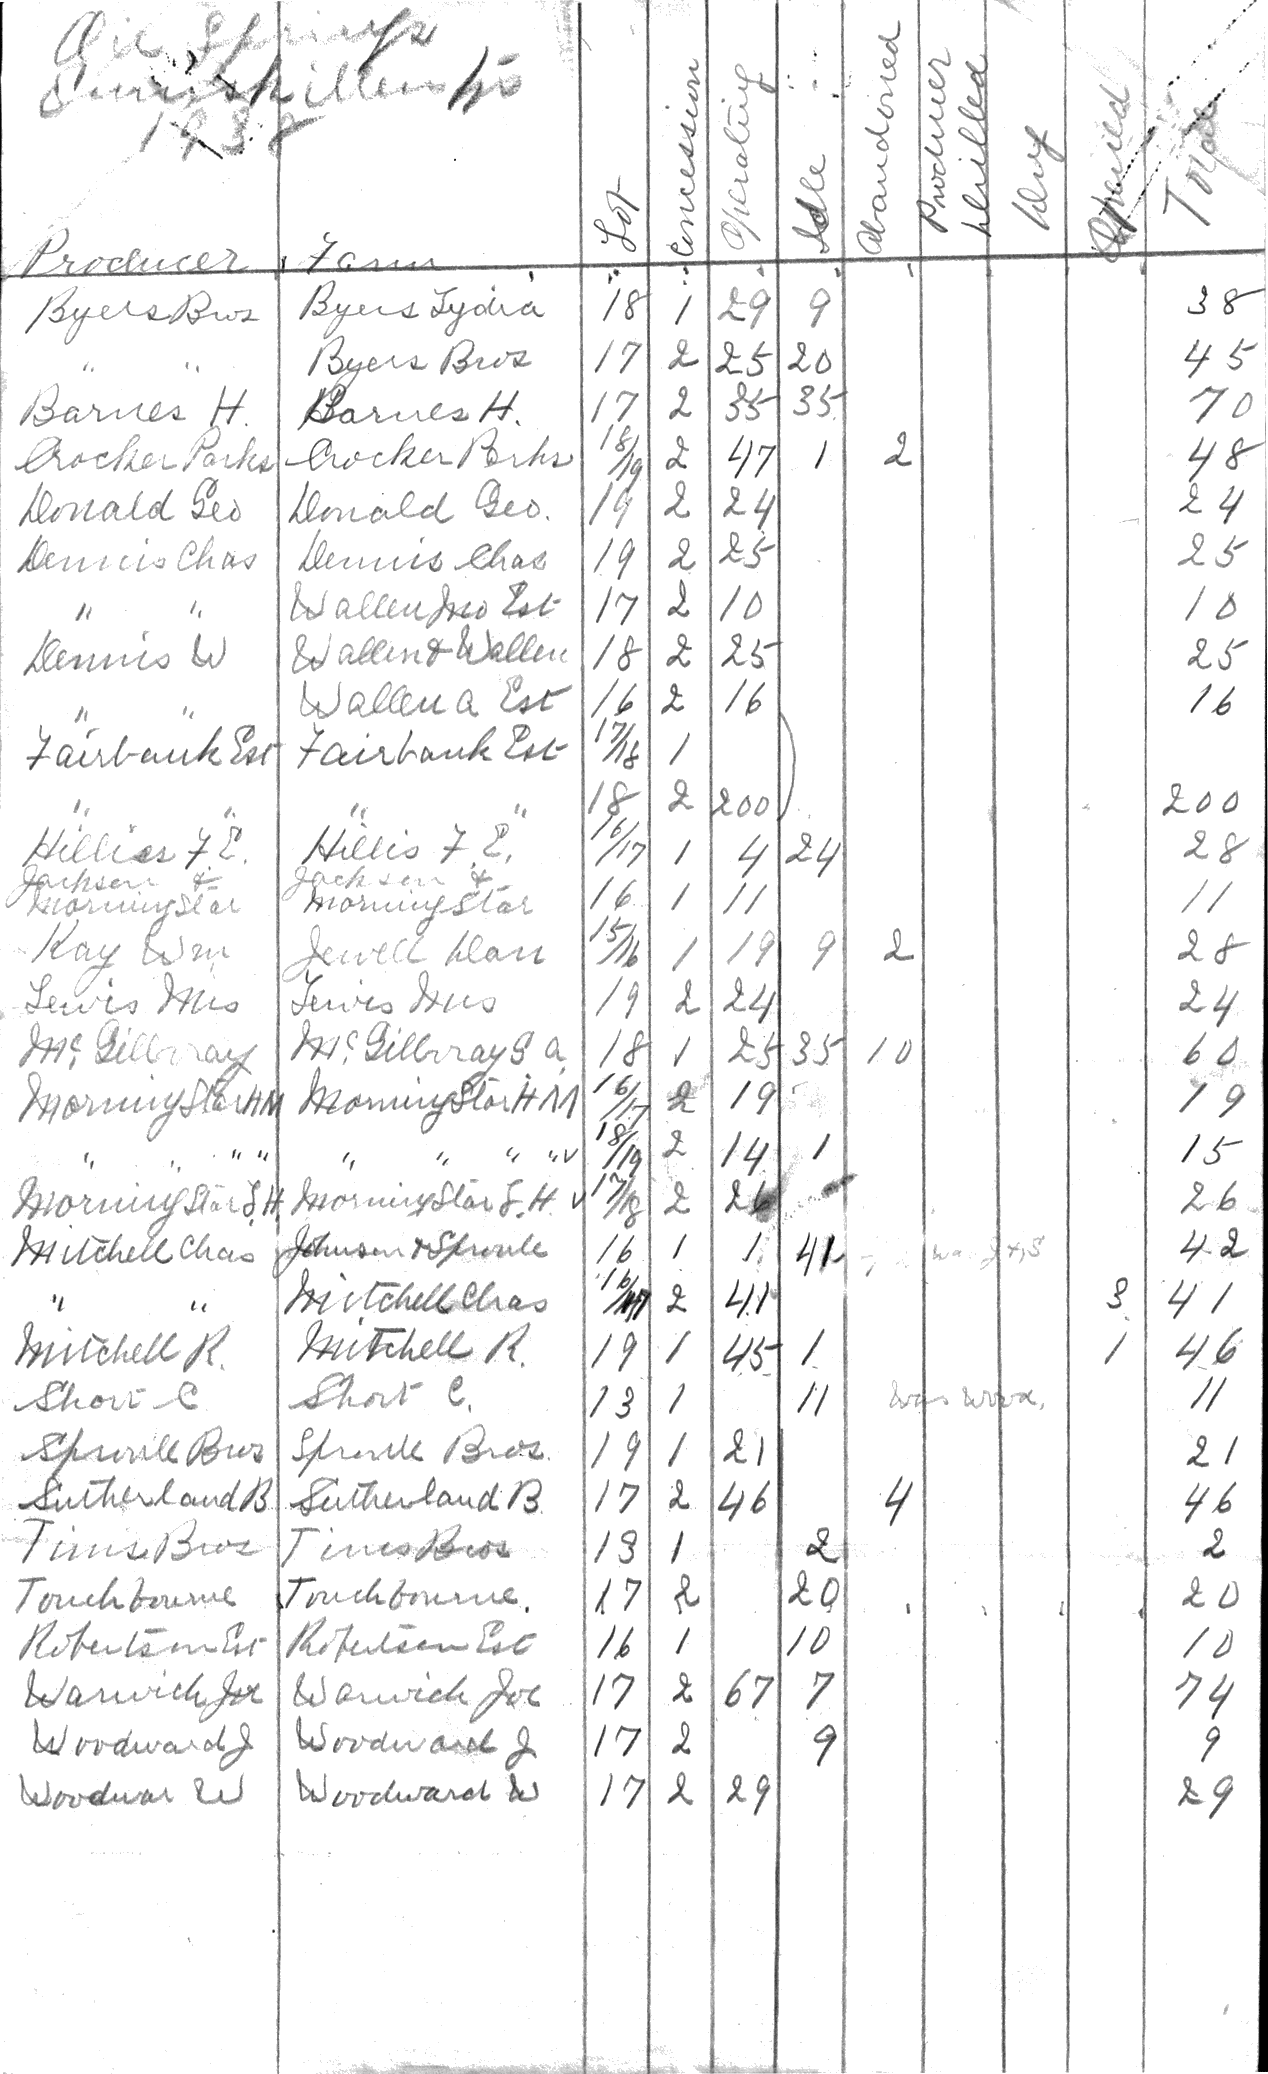 Oil Springs
Enniskillen Tp
1938
Producer Farm Lot Concession Operating Idle Abandoned Producer Drilled Dry Total
Byers Bros Byers Lydia 18 1 29 9 38
" " Byers Bros 17 2 25 20 45
Barnes H. Barnes H. 17 2 35 35 70
Crocker Parks Crocker Parks 18/19 2 47 1 2 48
Donald Geo Donald Geo. 19 2 24 24
Dennis Chas Dennis Chas 19 2 25 25
" " Wallen Jno Est 17 2 10 10
Dennis W Wallen & Wallen 18 2 25 25
" " Wallen A Est 16 2 16 16
Fairbank Est Fairbank Est 17/18 1
" " " " 18 2 200 200
F.E. Hillis F.E. 16/17 1 4 24 28
Jackson & Jackson &
MorningStar MorningStar 16 1 11 11
Kay Wm Jewell Dan 15/16 1 19 9 2 28
Lewis Mrs Lewis Mrs 19 2 24 24
McGillvray McGillvray S A 18 1 25 35 10 60
MorningStar HM MorningStar HM 16/17 2 19 19
" " " " " " " " v 18/19 2 14 1 15
MorningStar L.H. MorningStar L.H. v 17/18 2 26 26
Mitchell Chas Johnson & Sproule 16 1 1 41 was J & S 42
" " Mitchell Chas 16/17 2 41 3 41
Mitchell R. Mitchell R. 19 1 45 1 1 46
Short C Short C. 13 1 11 was 11
Sproule Bros Sproule Bros. 19 1 21 21
Sutherland B Sutherland B 17 2 46 4 46
Tims Bros Tims Bros 13 1 2 2
Touchbourne Touchbourne. 17 2 20 20
Robertson Est Robertson Est 16 1 10 10
Warwick Joe Warwick Joe 17 2 67 7 74
Woodward J Woodward J 17 2 9 9
Woodwar W Woodward W 17 2 29 29